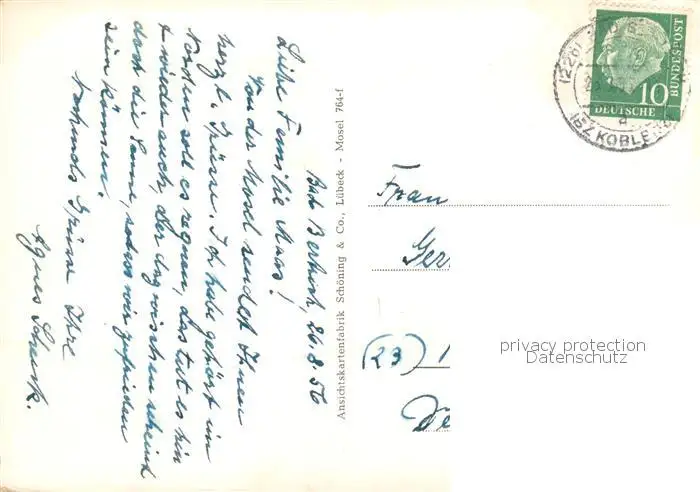 Bad Bertrich, 26.8.56
Liebe Familie Maas!
Von der Mosel sendet Ihnen
herzl. Grüsse. Ich habe gehört im
Norden soll es regnen, das tut es hin
+ wieder auch, aber dazwischen scheint
doch die Sonne, sodass wir zufrieden
sein können.
Grüsse Ihre
Agnes
Ansichtskartenfabrik Schöning & Co., Lübeck - Mosel 764-f
10
DEUTSCHE
BUNDESPOST
(22b)
a
Frau
Ger
(23)
privacy protection
Datenschutz